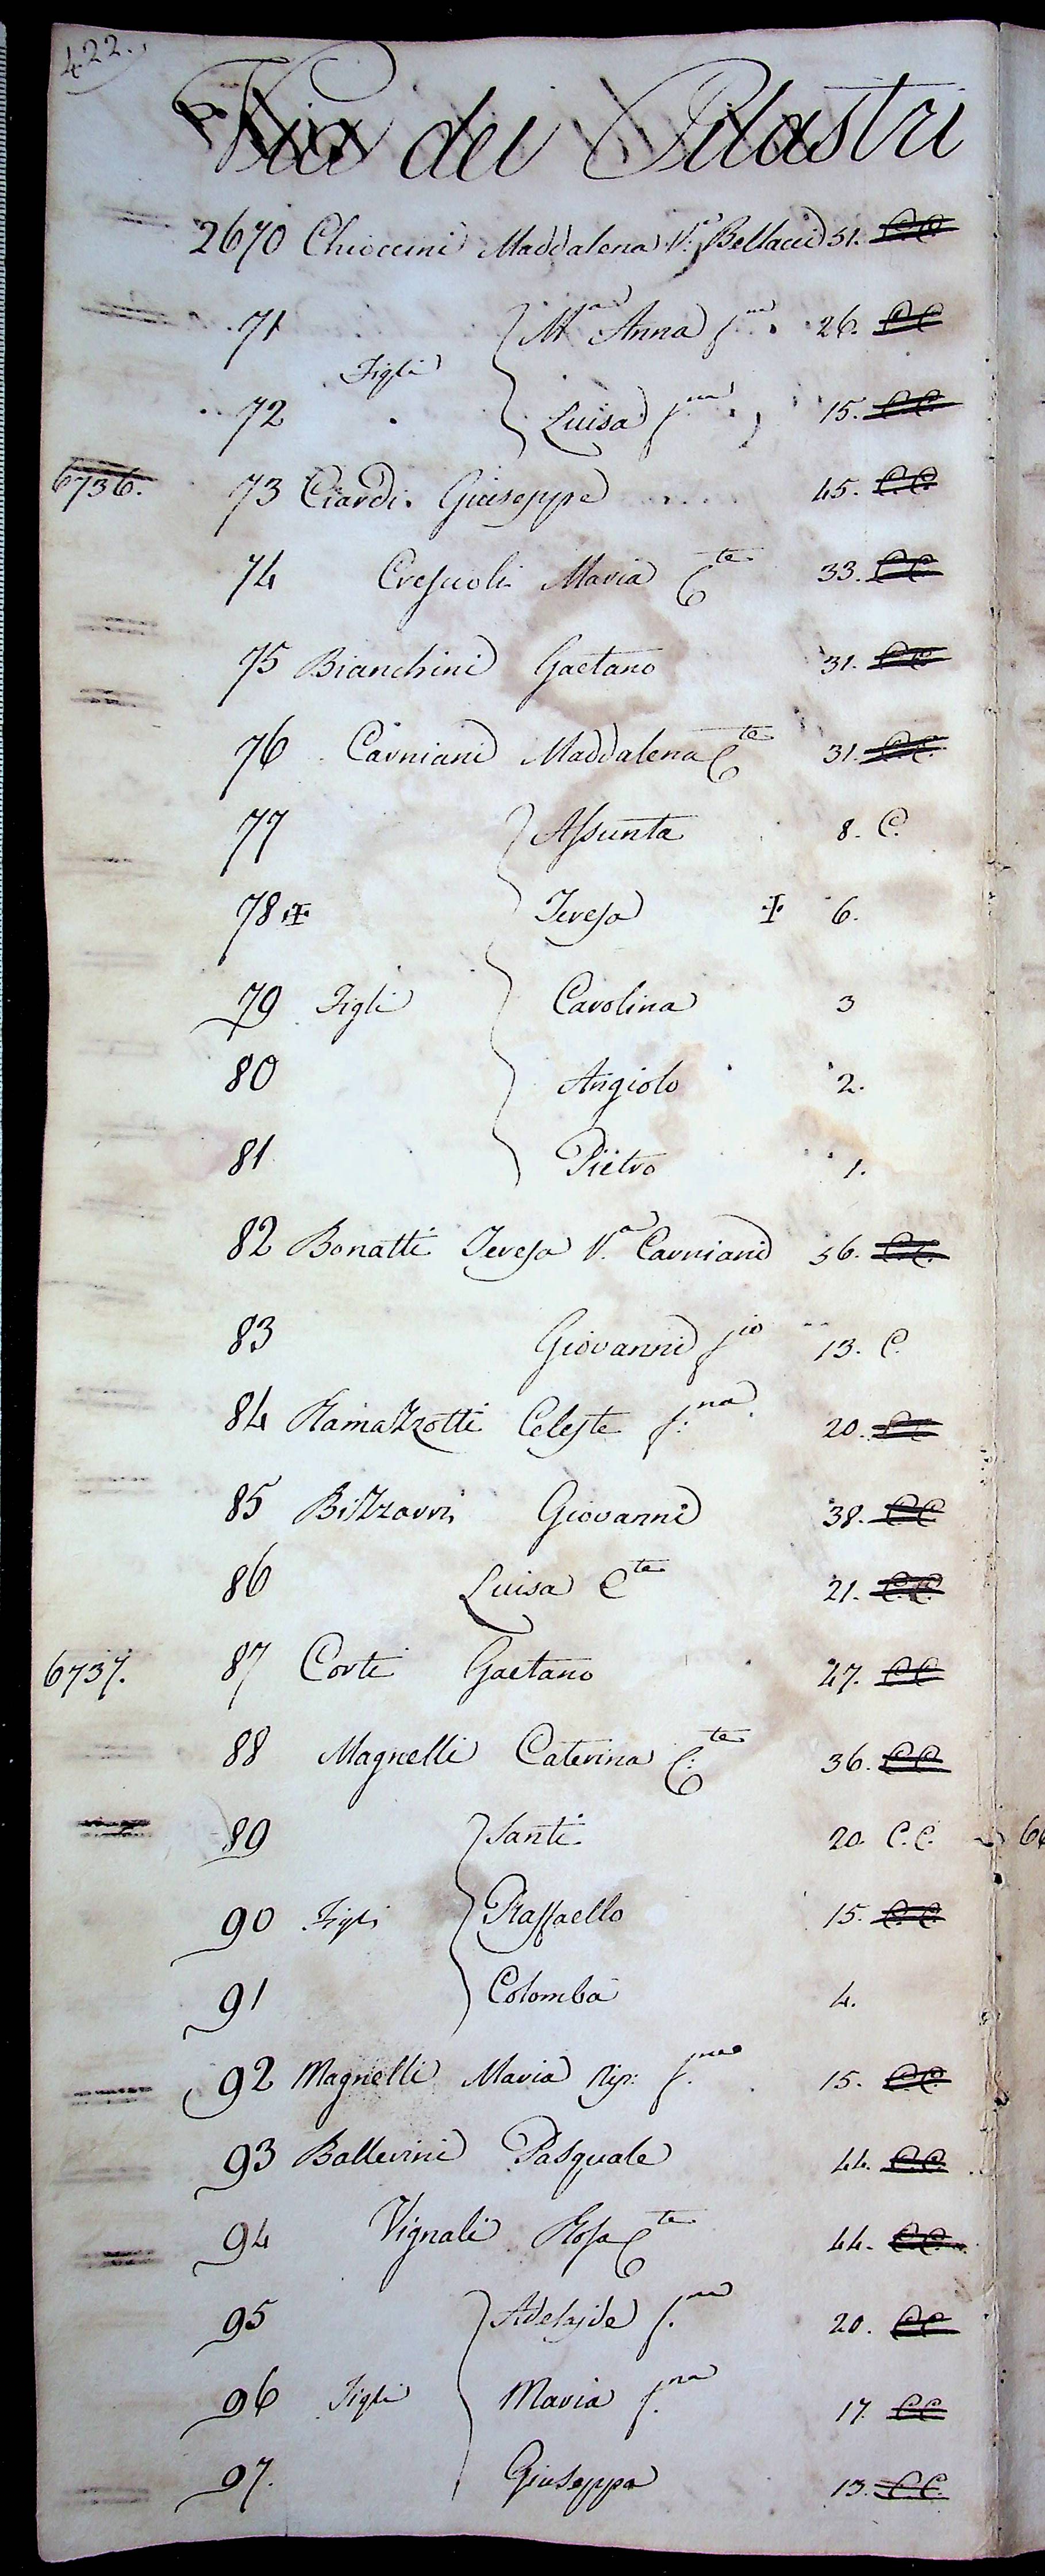 422.
Via dei Pilastri
2670 Chioccini Maddalena V.a Bellacci 51. C.C.
71 M.a Anna f.na 26. C.C.
Figli
72 Luisa f.na 15. C.C.
6736. 73 Ciardi Giuseppe 45. C.C.
74 Crescioli Maria C.te 33. C.C.
75 Bianchini Gaetano 31. C.C.
76 Carniani Maddalena C.te 31. C.C.
77 Assunta 8. C.
78 ✠ Teresa ✠ 6.
79 Figli Carolina 3
80 Angiolo 2.
81 Pietro 1.
82 Bonatti Teresa V.a Carniani 56. C.C.
83 Giovanni f.io 13. C.
84 Ramazzotti Celeste f.na 20. C.C.
85 Bizzarri Giovanni 38. C.C.
86 Luisa C.te 21. C.C.
6737. 87 Corti Gaetano 47. C.C.
88 Magnelli Caterina C.te 36. C.C.
89 Santi 20. C.C.
90 Figli Raffaello 15. C.C.
91 Colomba 4.
92 Magnelli Maria Nip: f.na 15. C.C.
93 Ballerini Pasquale 44. C.C.
94 Vignali Rosa C.te 44. C.C.
95 Adelaide f.na 20. C.C.
96 Figli Maria f.na 17. C.C.
97. Giuseppa 13. C.C.